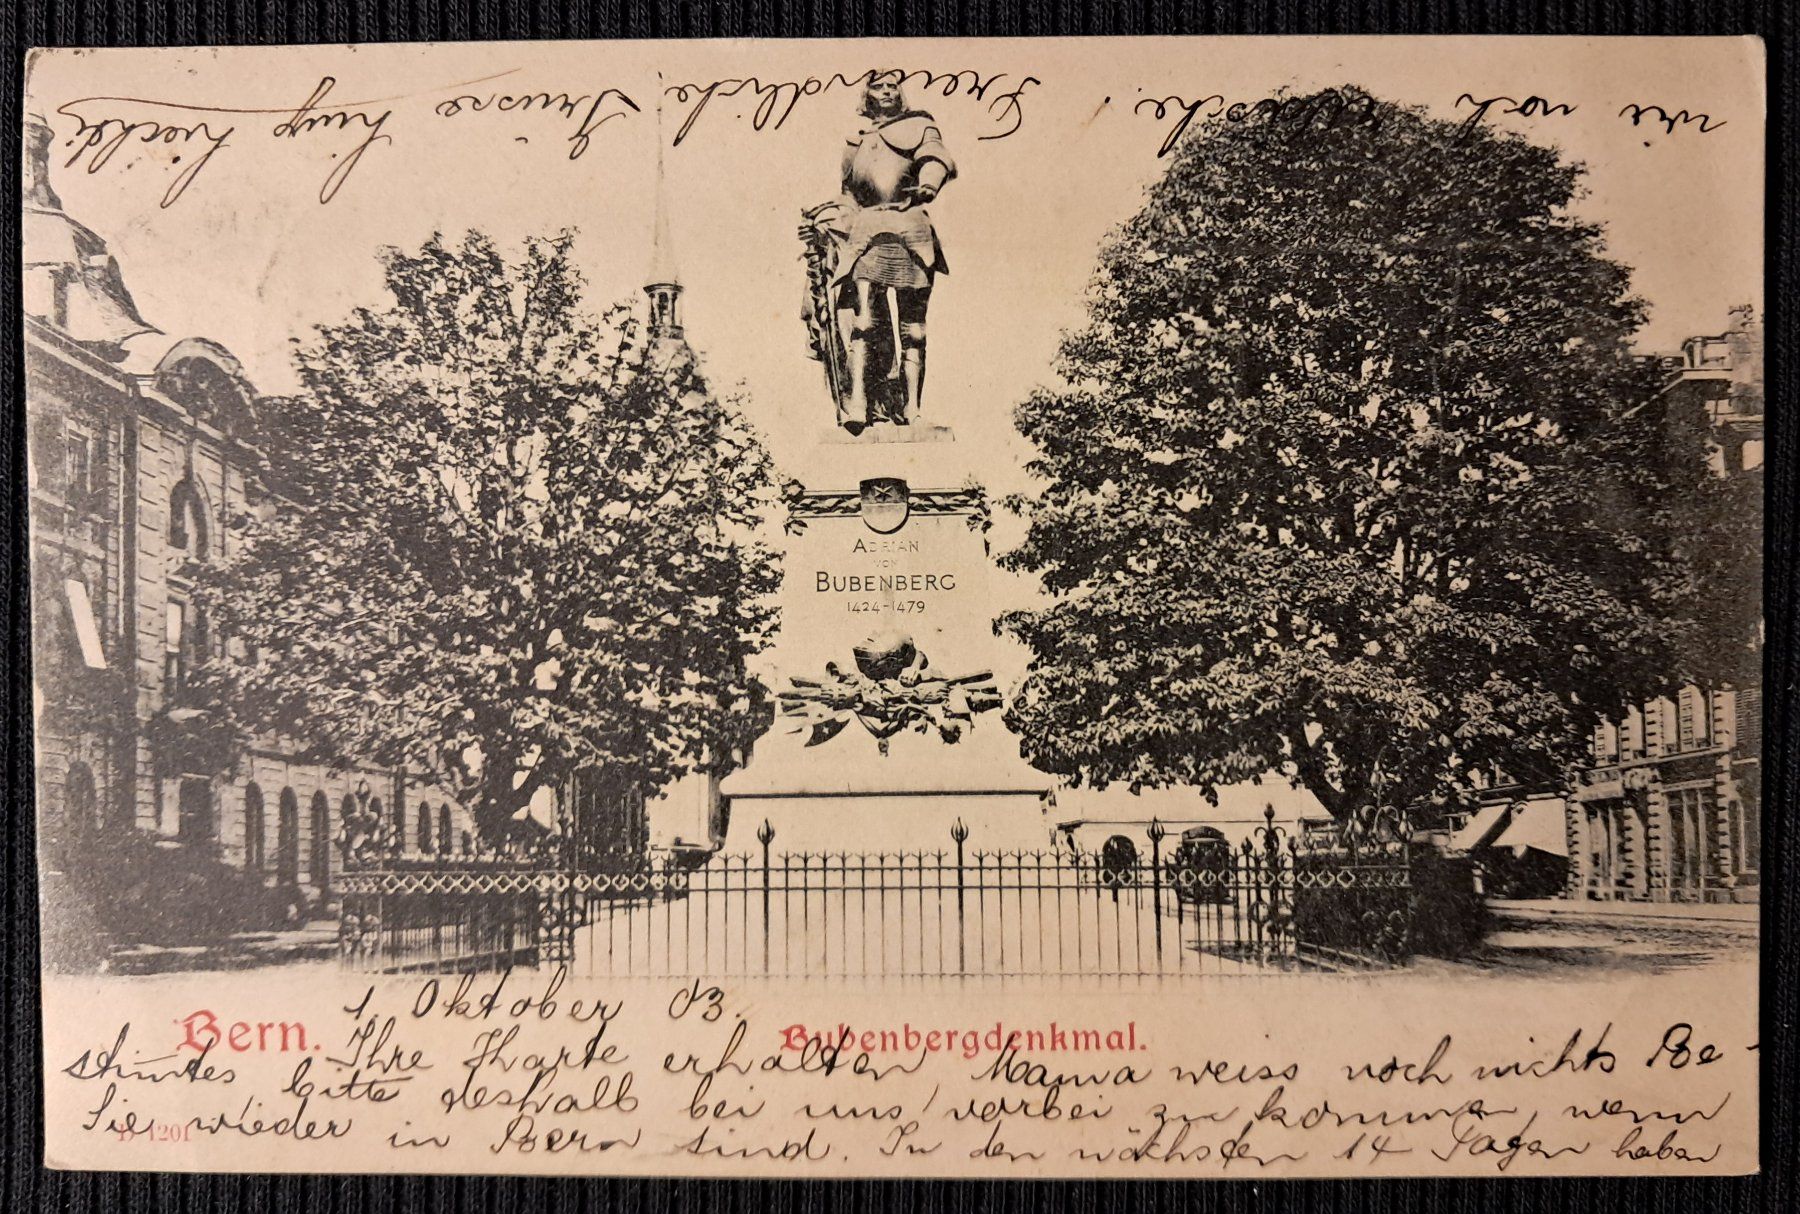 ADRIAN
VON
BUBENBERG
1424-1479
Bern.
Bubenbergdenkmal.
1201
1. Oktober 03.
Ihre Kharte erhalten, Mama weiss noch nichts Be-
stimmtes, bitte deshalb bei uns vorbei zu kommen, wenn
Sie wieder in Bern sind. In den nächsten 14 Tagen haben
wir noch Wäsche! Freundliche Grüsse